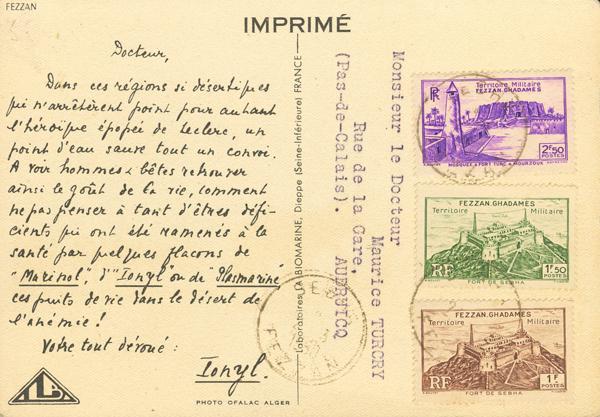 FEZZAN
IMPRIMÉ
Docteur,
Dans ces régions si désertiques
qui n'arrêtèrent point pour autant
l'héroïque épopée de Leclerc, un
point d'eau sauve tout un convoi.
A voir hommes & bêtes retrouver
ainsi le goût de la vie, comment
ne pas penser à tant d'êtres défi-
cients qui ont été ramenés à la
santé par quelques flacons de
"Marinol", d'"Ionyl" ou de Plasmarine,
ces puits de vie dans le désert de
l'anémie !
Votre tout dévoué :
Ionyl.
PHOTO OFALAC ALGER
Laboratoires LA BIOMARINE, Dieppe (Seine-Inférieure) FRANCE
Monsieur le Docteur
Maurice TURCRY
Rue de la Gare,
(Pas-de-Calais). AUDRUICQ
Territoire Militaire
FEZZAN.GHADAMÈS
RF
MOSQUÉE & FORT TURC - MOURZOUK
2F50
POSTES
FEZZAN.GHADAMES
Territoire Militaire
RF
1F50
POSTES
FORT DE SEBHA
FEZZAN.GHADAMES
Territoire Militaire
RF
1F
POSTES
FORT DE SEBHA
FEZZAN